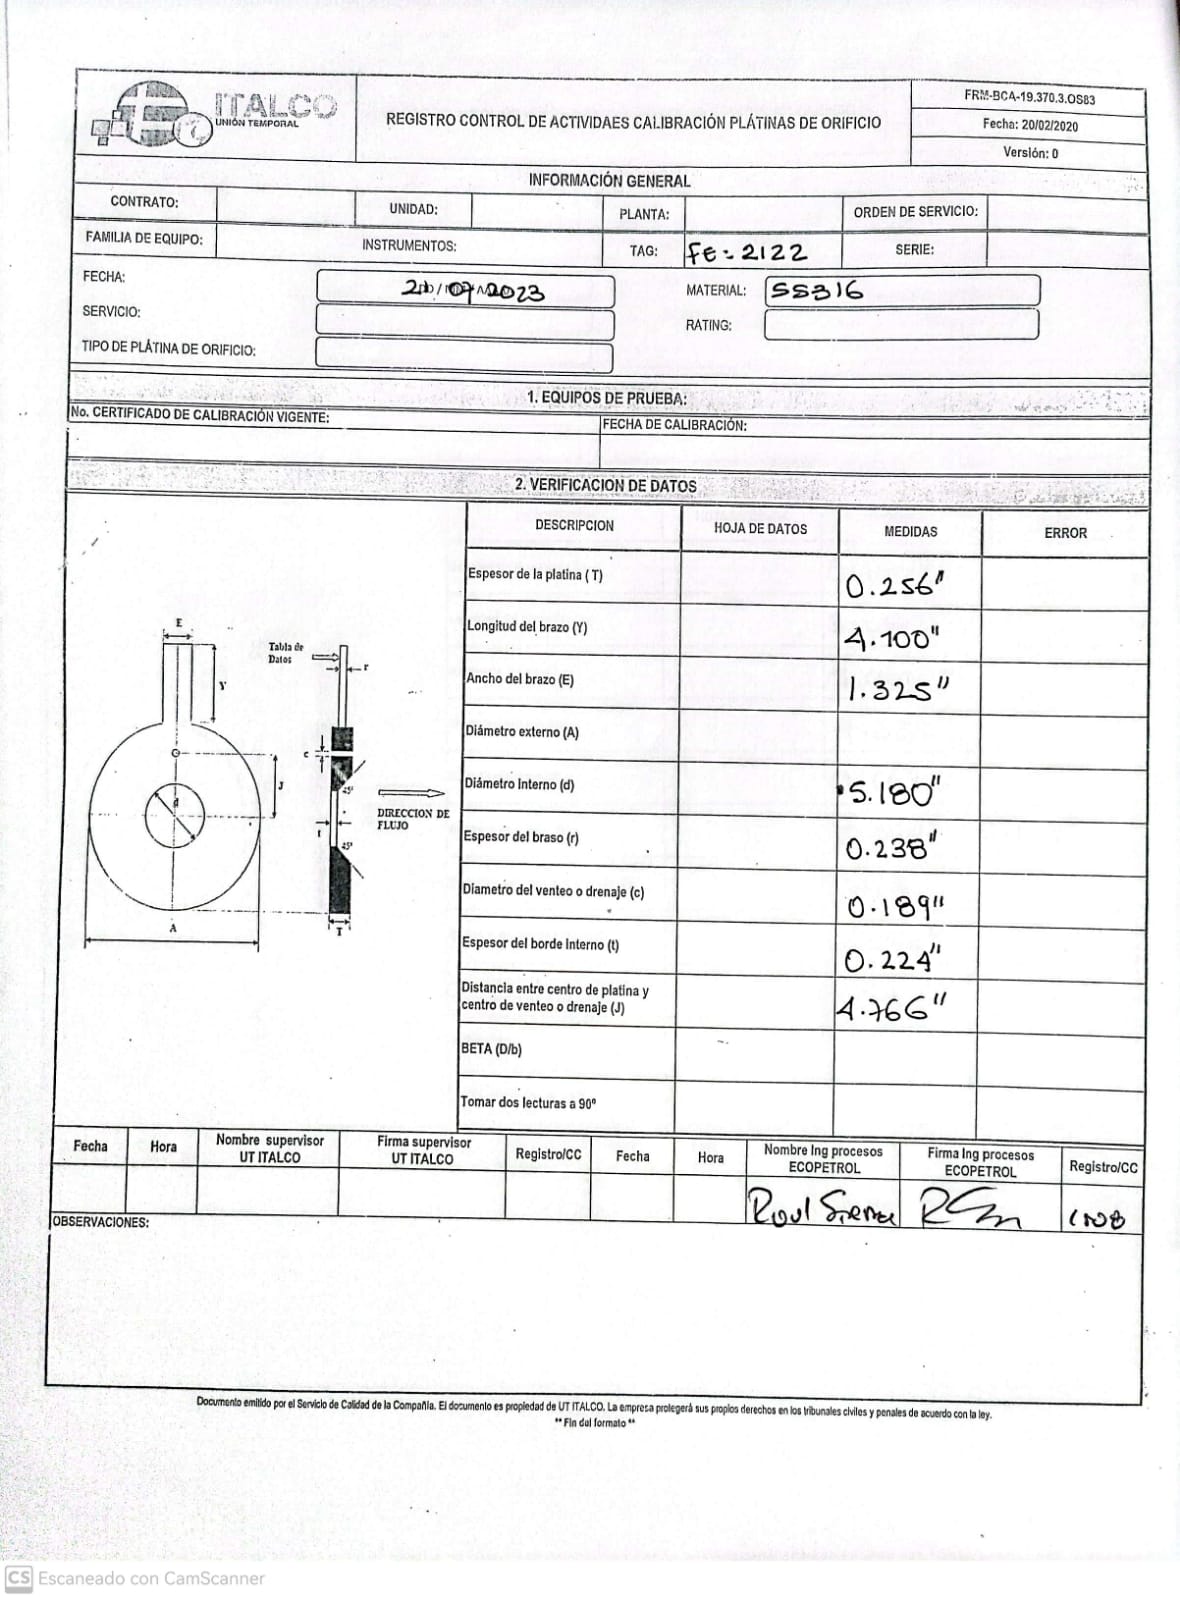 ITALCO
UNIÓN TEMPORAL
REGISTRO CONTROL DE ACTIVIDAES CALIBRACIÓN PLÁTINAS DE ORIFICIO
FRM-BCA-19.370.3.OS83
Fecha: 20/02/2020
Versión: 0
INFORMACIÓN GENERAL
CONTRATO: UNIDAD: PLANTA: ORDEN DE SERVICIO:
FAMILIA DE EQUIPO: INSTRUMENTOS: TAG: FE-2122 SERIE:
FECHA: 07 2023 MATERIAL: SS316
SERVICIO: RATING:
TIPO DE PLÁTINA DE ORIFICIO:
1. EQUIPOS DE PRUEBA:
No. CERTIFICADO DE CALIBRACIÓN VIGENTE: FECHA DE CALIBRACIÓN:
2. VERIFICACION DE DATOS
DESCRIPCION HOJA DE DATOS MEDIDAS ERROR
Espesor de la platina ( T) 0.256"
Longitud del brazo (Y) 4.100"
Ancho del brazo (E) 1.325"
Diámetro externo (A)
Diámetro Interno (d) 5.180"
Espesor del braso (r) 0.238"
Diametro del venteo o drenaje (c) 0.189"
Espesor del borde Interno (t) 0.224"
Distancia entre centro de platina y
centro de venteo o drenaje (J) 4.766"
BETA (D/b)
Tomar dos lecturas a 90º
E
Y
J
d
A
Tabla de
Datos
r
c
45º
t
45º
T
DIRECCION DE
FLUJO
Fecha Hora Nombre supervisor UT ITALCO Firma supervisor UT ITALCO Registro/CC Fecha Hora Nombre Ing procesos ECOPETROL Firma Ing procesos ECOPETROL Registro/CC
Raul Sierra
OBSERVACIONES:
Documento emitido por el Servicio de Calidad de la Compañía. El documento es propiedad de UT ITALCO. La empresa protegerá sus propios derechos en los tribunales civiles y penales de acuerdo con la ley.
** Fin del formato **
CS Escaneado con CamScanner